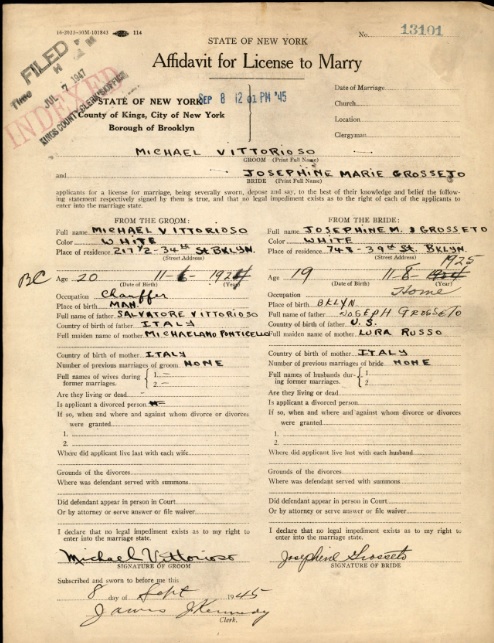 16-2913-50M-101943 114
No. 13101
STATE OF NEW YORK
Affidavit for License to Marry
FILED
JUL 7 1947
INDEXED
KINGS COUNTY CLERK'S OFFICE
SEP 8 12 01 PM '45
STATE OF NEW YORK
County of Kings, City of New York
Borough of Brooklyn
Date of Marriage
Church
Location
Clergyman
MICHAEL VITTORIOSO
GROOM (Print Full Name)
and JOSEPHINE MARIE GROSSETO
BRIDE (Print Full Name)
applicants for a license for marriage, being severally sworn, depose and say, to the best of their knowledge and belief the follow-
ing statement respectively signed by them is true, and that no legal impediment exists as to the right of each of the applicants to
enter into the marriage state.
FROM THE GROOM:
Full name MICHAEL VITTORIOSO
Color WHITE
Place of residence 217 1/2-34th St BKLYN.
(Street Address)
BC Age 20 11-6-1924
(Date of Birth) (Year)
Occupation Chauffer
Place of birth MAN.
Full name of father SALVATORE VITTORIOSO
Country of father ITALY
Full maiden name of mother MICHAELANO PONTICELLO
Country of mother ITALY
Number of previous marriages of groom NONE
Full names of wives during 1. —
former marriages. 2. —
Are they living or dead —
Is applicant a divorced person
If so, when and where and against whom divorce or divorces
were granted
1.
2.
Where did applicant live last with each wife
Grounds of the divorces
Where was defendant served with summons
Did defendant appear in person in Court
Or by attorney or serve answer or file waiver
I declare that no legal impediment exists as to my right
to enter into the marriage state.
Michael Vittorioso
SIGNATURE OF GROOM
FROM THE BRIDE:
Full name JOSEPHINE M. GROSSETO
Color WHITE
Place of residence 748-39th St. BKLYN.
(Street Address)
1925
Age 19 11-8-1924
(Date of Birth) (Year)
Occupation Home
Place of birth BKLYN
Full name of father JOSEPH GROSSETO
Country of father U.S.
Full maiden name of mother LURA RUSSO
Country of mother ITALY
Number of previous marriages of bride NONE
Full names of husbands dur- 1.
ing former marriages. 2.
Are they living or dead
Is applicant a divorced person
If so, when and where and against whom divorce or divorces
were granted
1.
2.
Where did applicant live last with each husband
Grounds of the divorces
Where was defendant served with summons
Did defendant appear in person in Court
Or by attorney or serve answer or file waiver
I declare that no legal impediment exists as to my right to
enter into the marriage state.
Josephine Grosseto
SIGNATURE OF BRIDE
Subscribed and sworn to before me this
8 day of Sept 1945
James J Kennedy
Clerk.